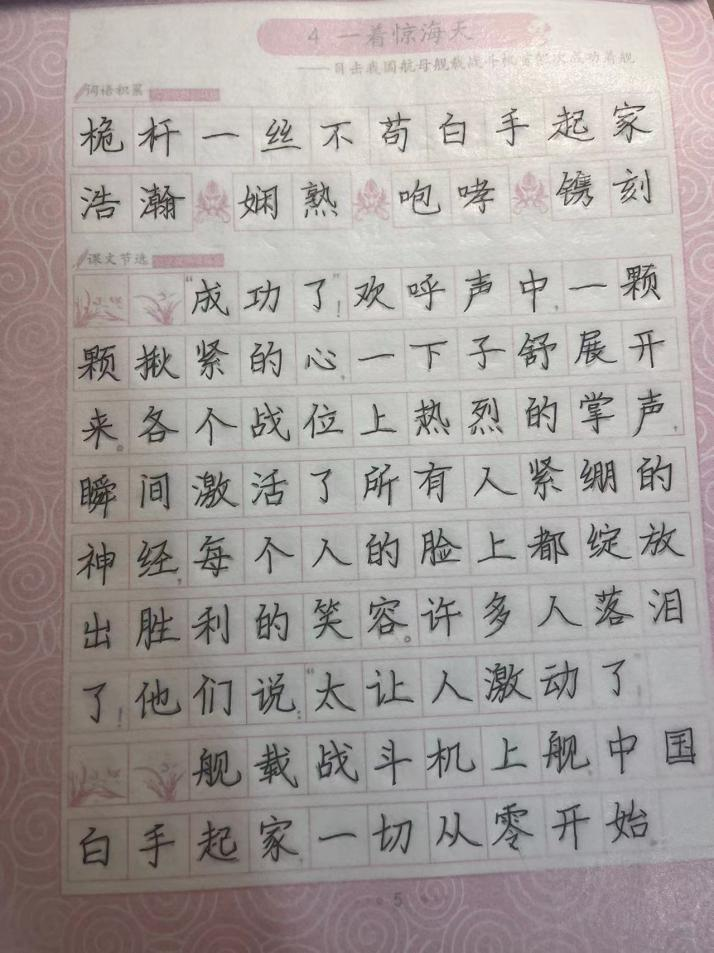 4 一着惊海天
——目击我国航母舰载战斗机首架次成功着舰
词语积累
桅杆一丝不苟白手起家
浩瀚 娴熟 咆哮 镌刻
课文节选
“成功了”!欢呼声中,一颗
颗揪紧的心,一下子舒展开
来。各个战位上热烈的掌声,
瞬间激活了所有人紧绷的
神经,每个人的脸上都绽放
出胜利的笑容。许多人落泪
了!他们说:“太让人激动了
舰载战斗机上舰,中国
白手起家,一切从零开始
5